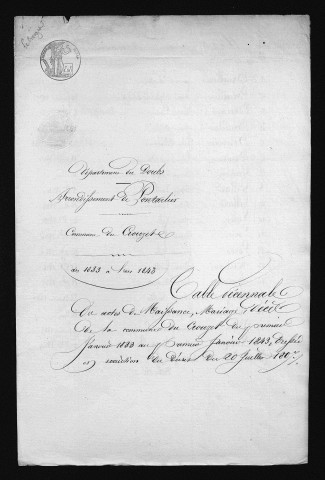 Département du Doubs
Arrondissement de Pontarlier
Commune du Crouzet
de 1833 à l'an 1843
Table Décennale
Des actes de Naissance, Mariage & Décès
de la commune du Crouzet du premier
Janvier 1833 au premier Janvier 1843, dressée
en exécution du Décret du 20 Juillet 1807